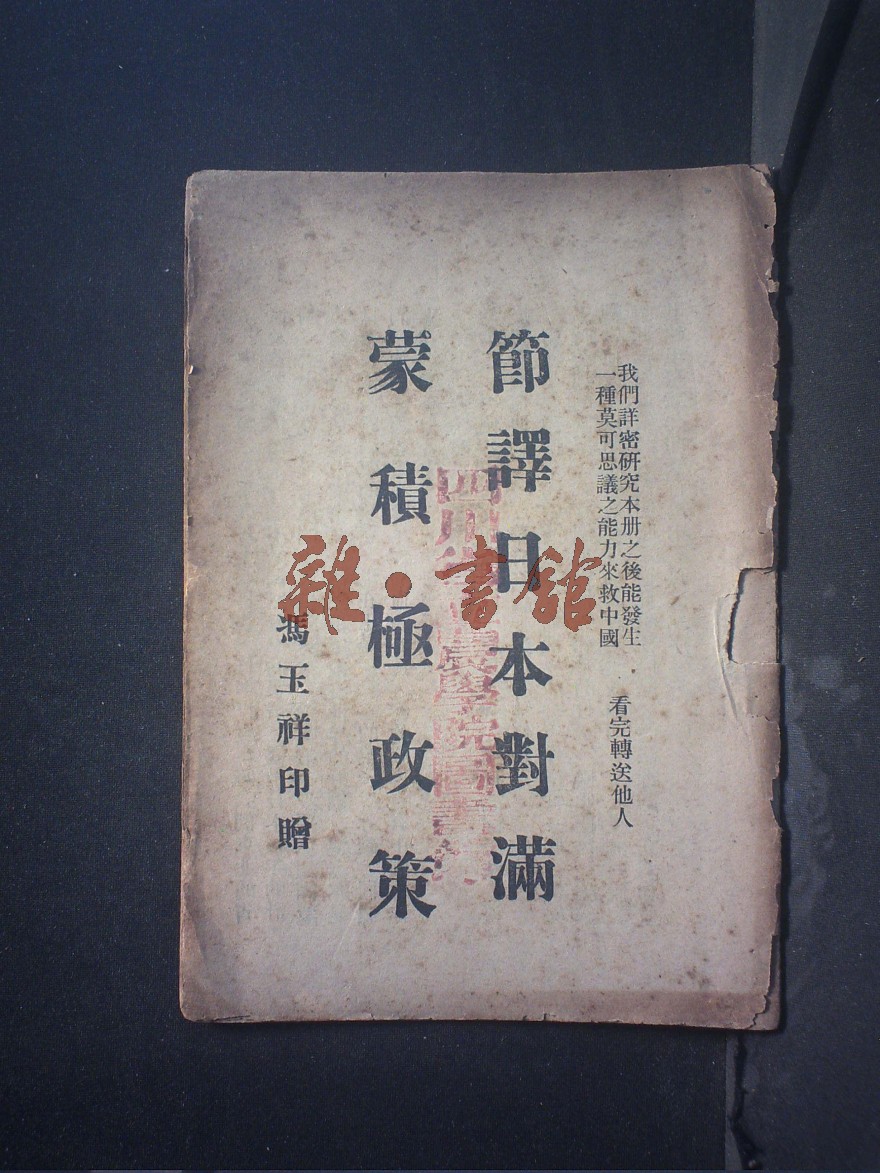 我們詳密研究本册之後能發生
一種莫可思議之能力來救中國
看完轉送他人
節譯日本對滿
蒙積極政策
馮玉祥印贈
雜·書館
四川省立農學院圖書